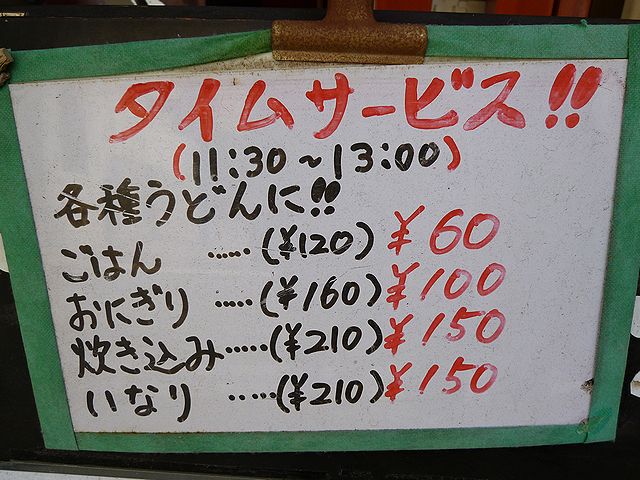 タイムサービス!!
(11:30~13:00)
各種うどんに!!
ごはん ‥‥‥(¥120) ¥60
おにぎり ‥‥‥(¥160) ¥100
炊き込み‥‥‥(¥210) ¥150
いなり ‥‥‥(¥210) ¥150